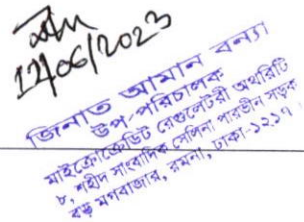 12/06/2023
জিনাত আমান বন্যা
উপ-পরিচালক
মাইক্রোক্রেডিট রেগুলেটরী অথরিটি
৮, শহীদ সাংবাদিক সেলিনা পারভীন সড়ক
বড় মগবাজার, রমনা, ঢাকা-১২১৭